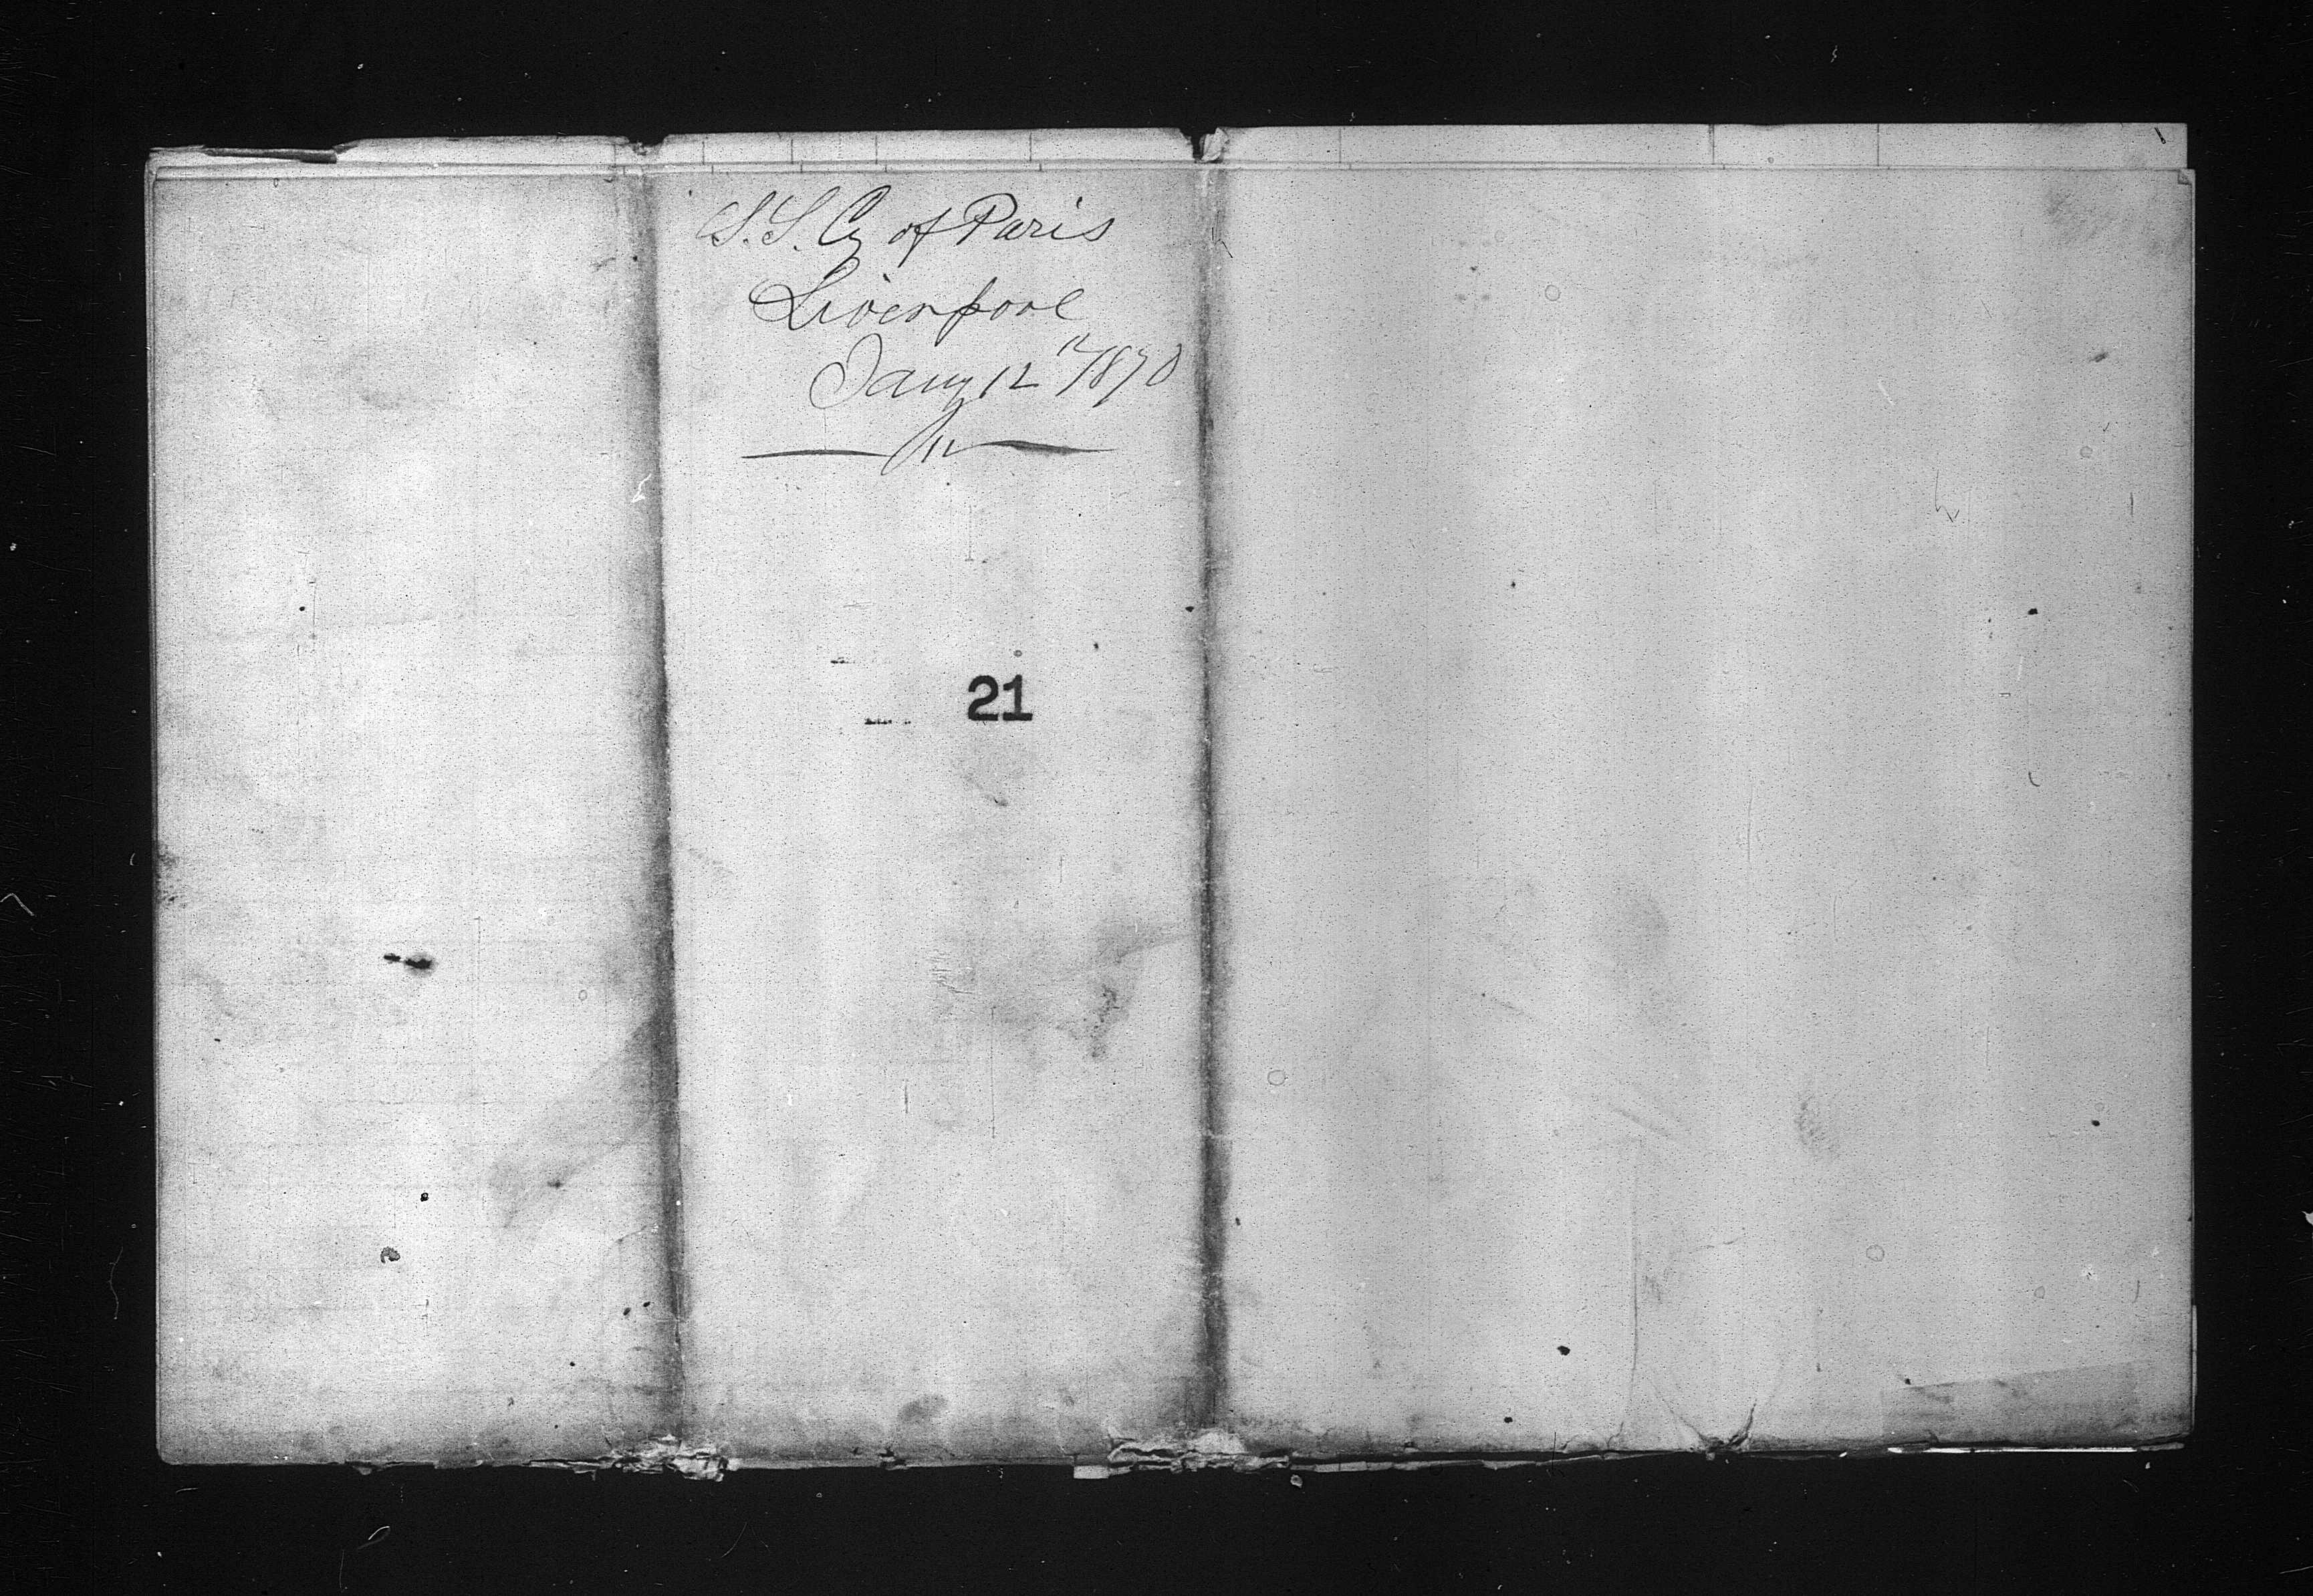 S.S. Cy of Paris
Liverpool
Jany 12th 1870
12
21